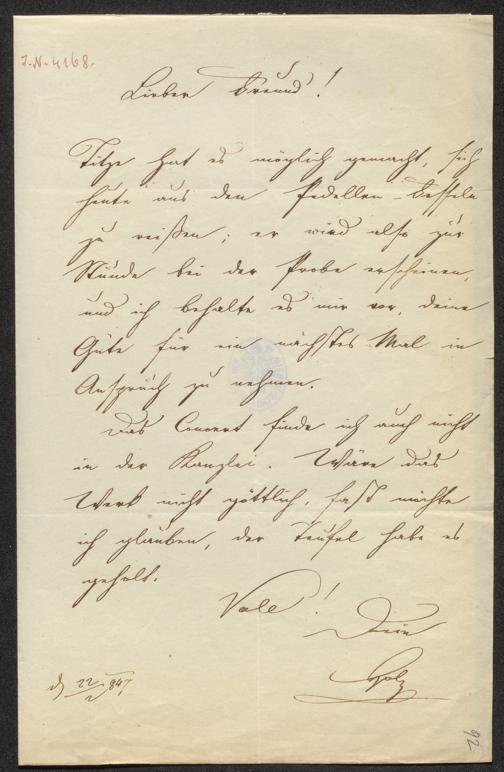 I.N. 4168.
Lieber Freund!
Titze hat es möglich gemacht, sich
heute aus den Pedellen-Fesseln
zu reißen; er wird also zur
Stunde bei der Probe erscheinen,
und ich behalte es mir vor, deine
Güte für ein nächstes Mal in
Anspruch zu nehmen.
Das Concert finde ich auch nicht
in der Kanzlei. Wäre das
Werk nicht göttlich, fast möchte
ich glauben, der Teufel habe es
geholt.
Vale!
Dein
Holz
22/2 847
92